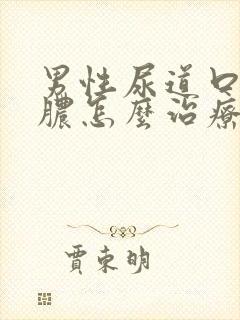 男性尿道口
膿怎麼治療
賈東明